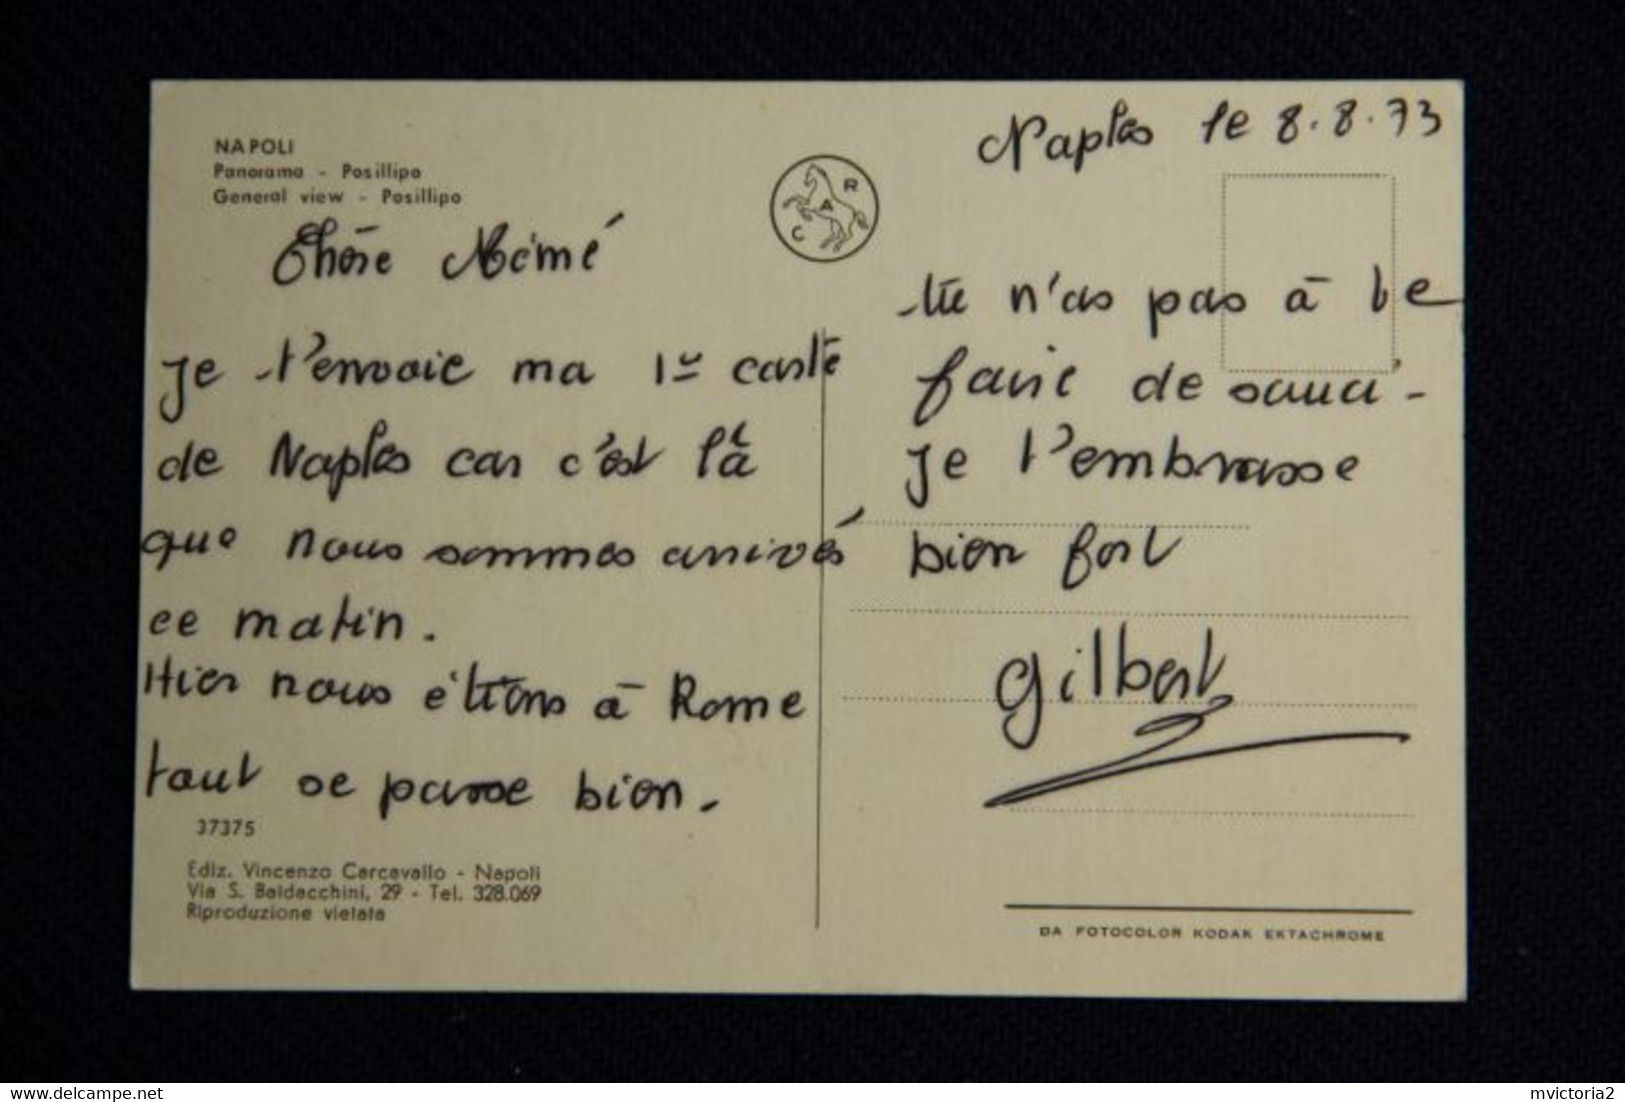 NAPOLI
Panorama - Posillipo
General view - Posillipo
R
A
C
Naples le 8.8.73
Chère Mémé
je t'envoie ma 1re carte
de Naples car c'est là
que nous sommes arrivés
ce matin.
Hier nous étions à Rome
tout se passe bien.
tu n'as pas à te
faire de souci.
je t'embrasse
bien fort
Gilbert
37375
Ediz. Vincenzo Carcavallo - Napoli
Via S. Baldacchini, 29 - Tel. 328.069
Riproduzione vietata
DA FOTOCOLOR KODAK EKTACHROME
delcampe.net
mvictoria2